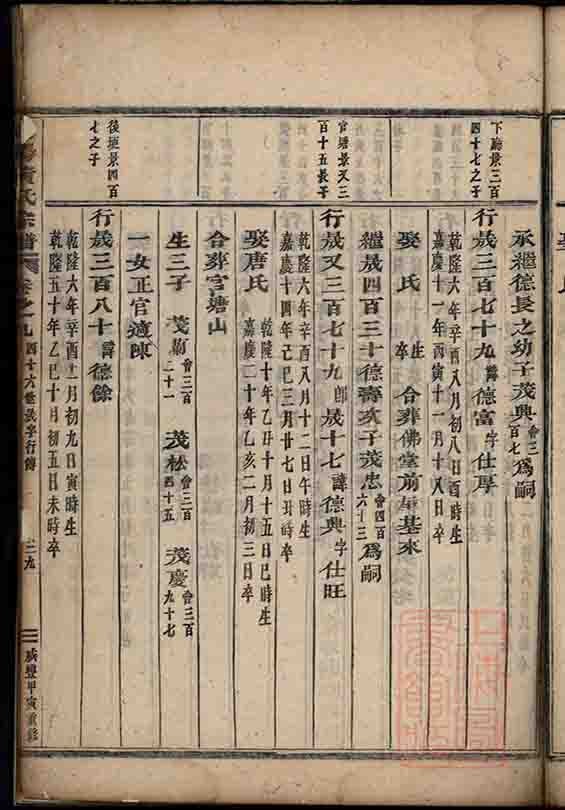 承繼德長之幼子茂典會三百七爲嗣
下廳景三百四十七之子
行晟三百七十九諱德富字仕厚
乾隆六年辛酉八月初八日酉時生
嘉慶十一年丙寅十一月十八日卒
娶 氏 生卒 合葬佛堂前屋基來
繼晟四百三十德壽次子茂忠會四百六十三爲嗣
官塘景又三百十五長子
行晟又三百七十九卽晟十七諱德興字仕旺
乾隆六年辛酉八月十二日午時生
嘉慶十四年己巳三月廿七日丑時卒
娶唐氏
乾隆十年乙丑十月十五日巳時生
嘉慶二十年乙亥二月初三日卒
合葬官塘山
生三子 茂勤會三百二十一 茂松會三百四十五 茂慶會三百九十七
一女正官適陳
後逕景四百七之子
行晟三百八十諱德餘
乾隆六年辛酉十一月初九日寅時生
乾隆五十年乙巳十月初五日未時卒
氏宗譜 卷之九 四十六世晟字行傳 二九 咸豐甲寅重修